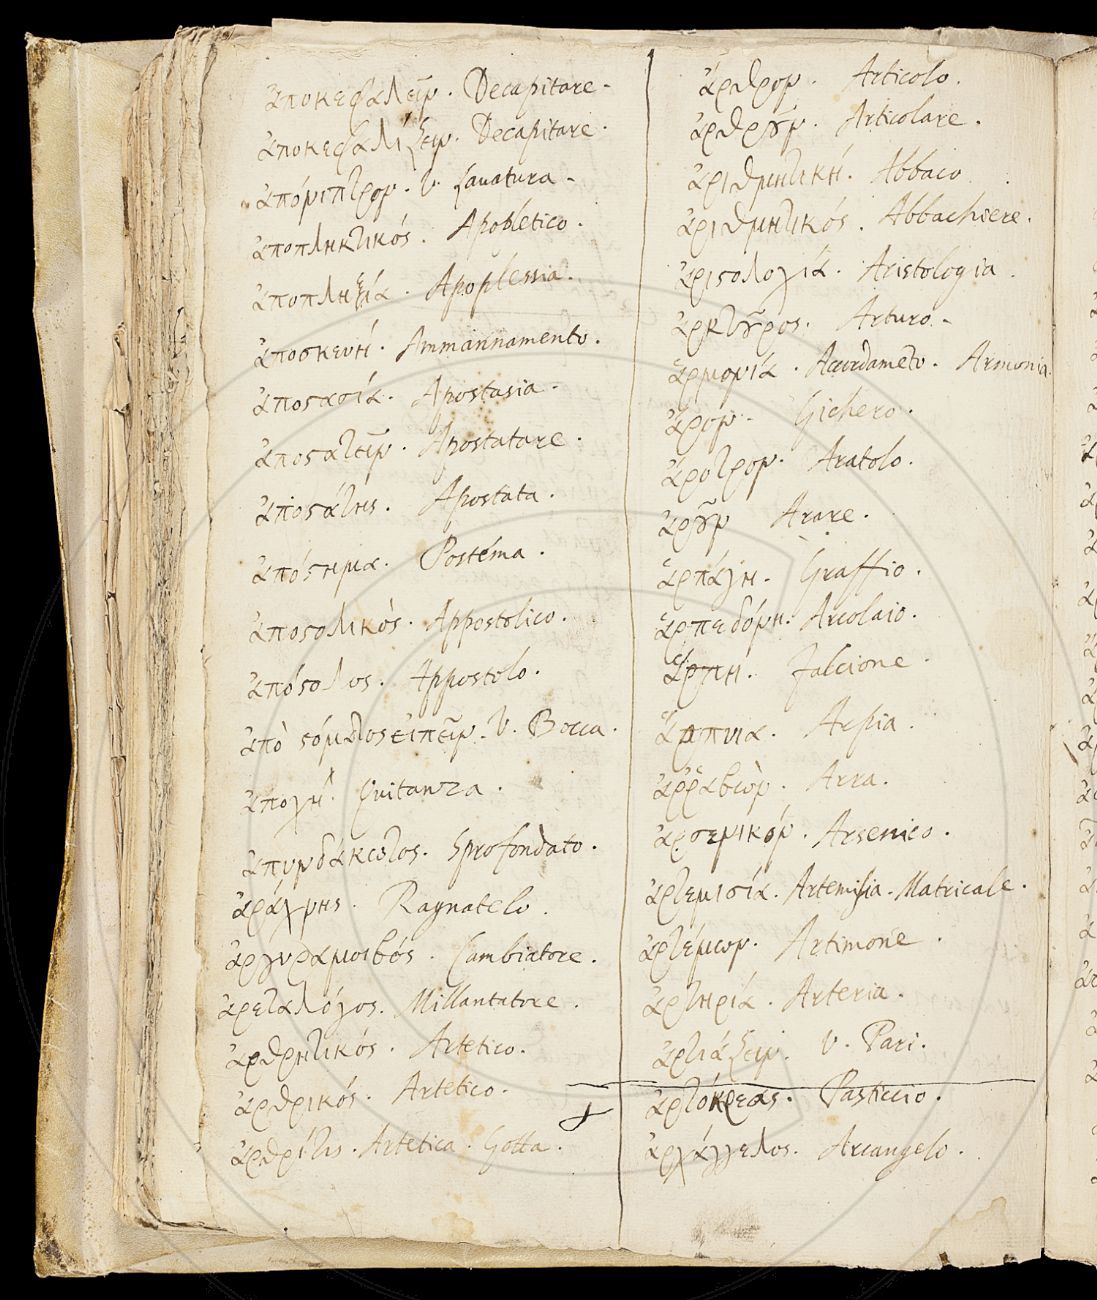 ἀποκεφαλεῖν. Decapitare.
ἀποκεφαλίζειν. Decapitare.
ἀπόνιπτρον. V. Lauatura.
ἀποπληκτικός. Apobletico.
ἀποπληξία. Apoplessia.
ἀποσκευή. Ammannamento.
ἀποστασία. Apostasia.
ἀποστατεῖν. Apostatare.
ἀποστάτης. Apostata.
ἀπόστημα. Postema.
ἀποστολικός. Appostolico.
ἀπόστολος. Appostolo.
ἀπὸ στόματος εἰπεῖν. V. Bocca.
ἀποχή. Quitanza.
ἀπυνδάκωτος. Sprofondato.
ἀράχνης. Ragnatelo.
ἀργυραμοιβός. Cambiatore.
ἀρεταλόγος. Millantatore.
ἀρθρητικός. Artetico.
ἀρθρικός. Artetico.
ἀρθρίτις. Artetica. Gotta.
ἄρθρον. Articolo.
ἀρθροῦν. Articolare.
ἀριθμητική. Abbaco
ἀριθμητικός. Abbachiere.
ἀριστολογία. Aristologia.
ἀρκτοῦρος. Arturo.
ἁρμονία. Accordameto. Armonia.
ἄρον. Gichero.
ἄροτρον. Aratolo.
ἀροῦν Arare.
ἁρπάγη. Graffio.
ἁρπεδόνη. Arcolaio.
ἅρπη. Falcione.
ἅρπυια. Arpia.
ἀῤῥαβὼν. Arra.
ἀρσενικόν. Arsenico.
ἀρτεμισία. Artemisia. Matricale.
ἀρτέμων. Artimone.
ἀρτηρία. Arteria.
ἀρτιάζειν. V. Pari.
ἀρτόκρεας. Pasticcio.
ἀρχάγγελος. Arcangelo.